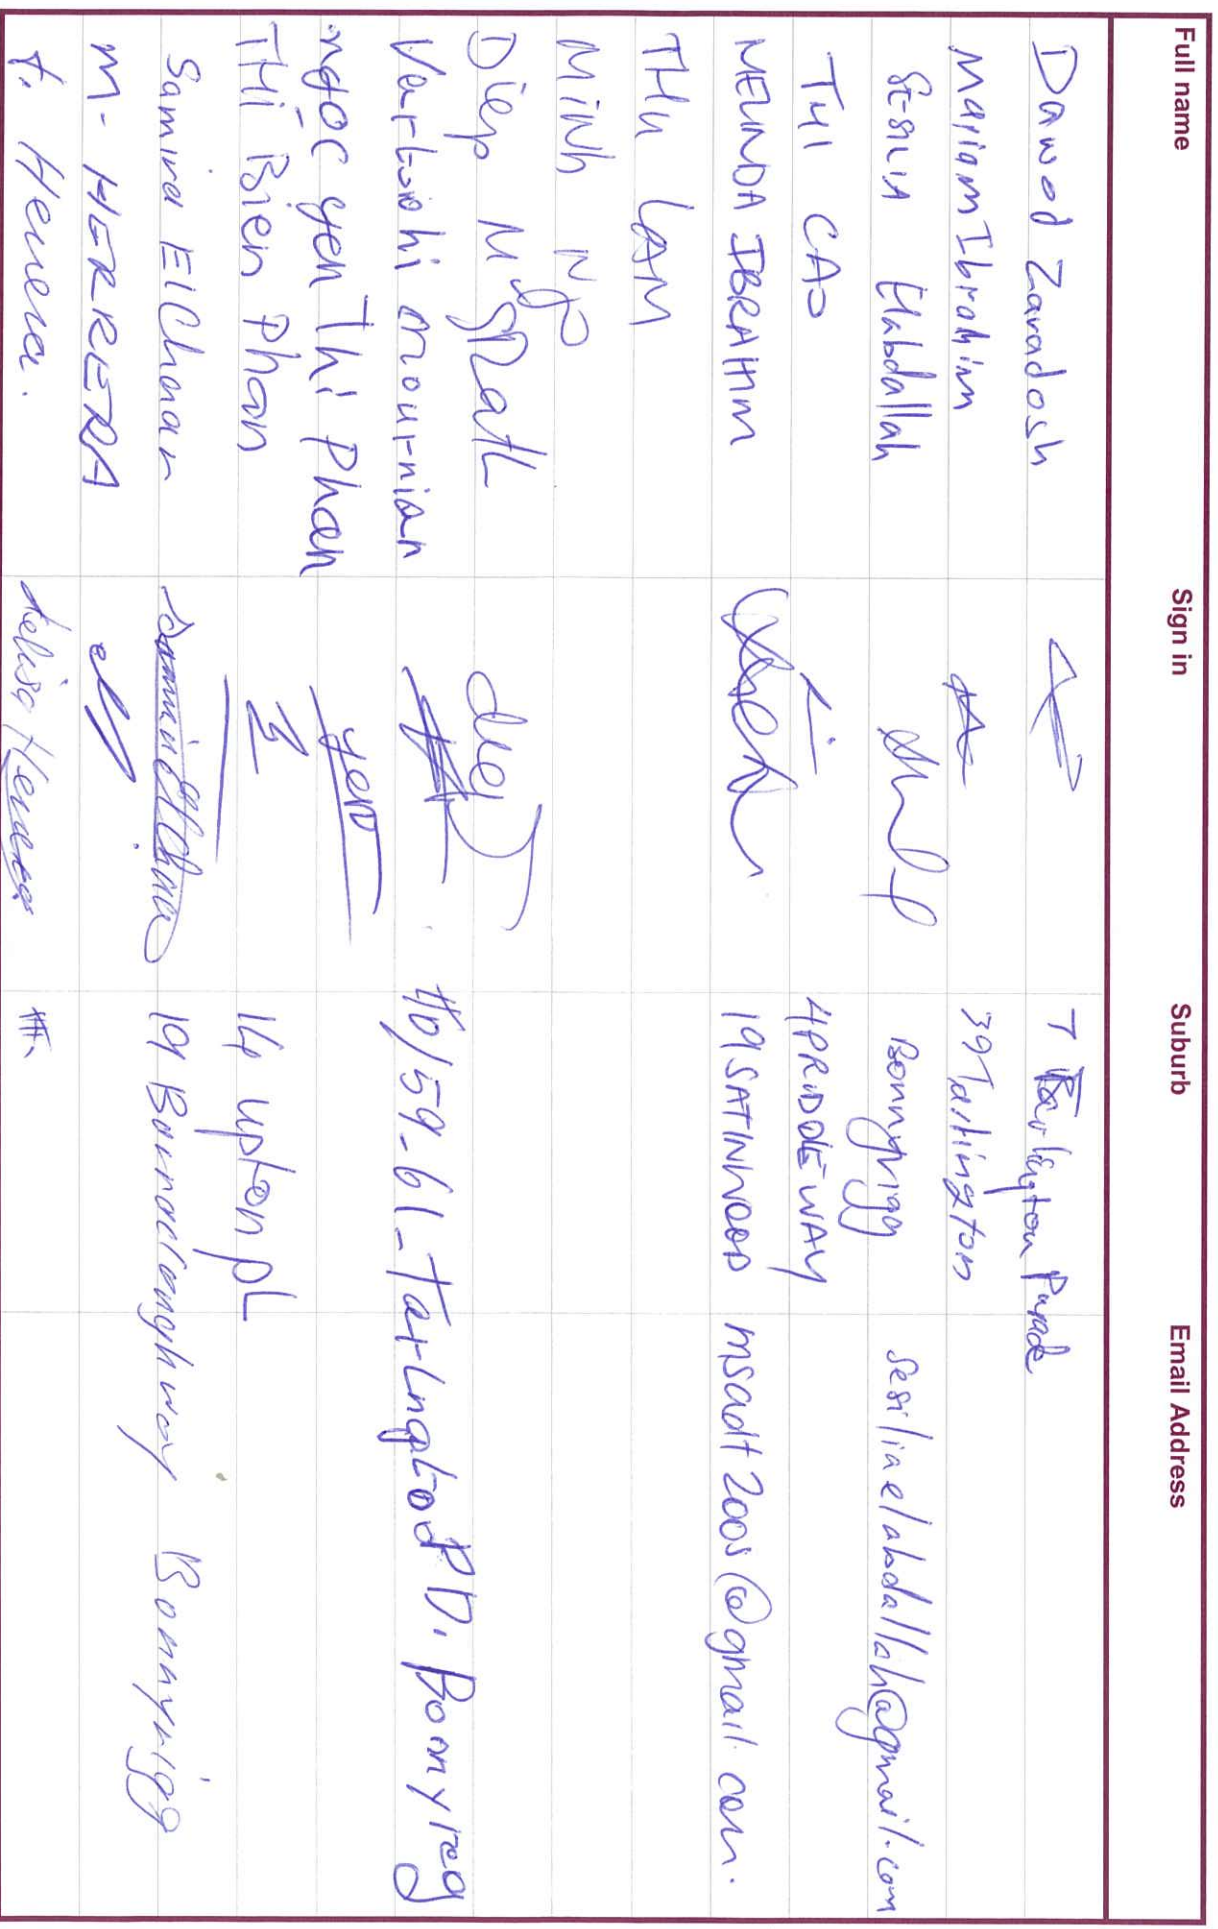 Full name Sign in Suburb Email Address
Dawod Zaradosh 7 Tarlington Parade
Mariam Ibrahim 39 Tarlington
Sesilia Elabdallah Bonnyrigg sesiliaelabdallah@gmail.com
THI CAO 4 PRIDDLE WAY
MELINDA IBRAHIM 19 SATINWOOD msadt2005@gmail.com.
THU LAM
MiNh Ngo
Diep
Vartouhi mournian 16/59-61-TarLngtod PD. Bonnyreg
ngoc yen Thi Phan yen
THi Bien Phan 14 upton pL
Samira ElChaar 19 Bonnyrigg
M. HERRERA
f. Herrera. Herrera